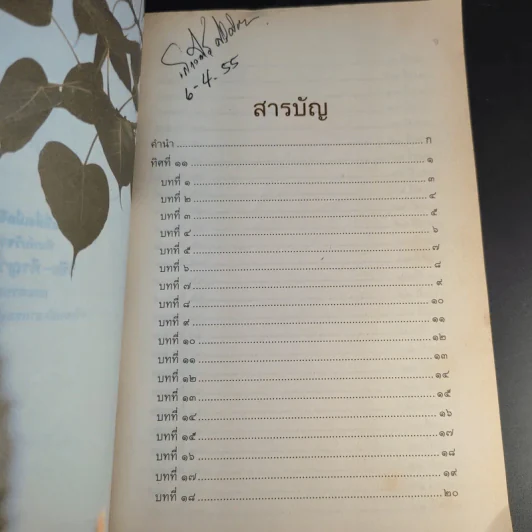 6-4-55
สารบัญ
คำนำ ก
ทิศที่ ๑๑ ๑
บทที่ ๑ ๓
บทที่ ๒ ๔
บทที่ ๓ ๕
บทที่ ๔ ๖
บทที่ ๕ ๗
บทที่ ๖ ๘
บทที่ ๗ ๙
บทที่ ๘ ๑๐
บทที่ ๙ ๑๑
บทที่ ๑๐ ๑๒
บทที่ ๑๑ ๑๓
บทที่ ๑๒ ๑๔
บทที่ ๑๓ ๑๕
บทที่ ๑๔ ๑๖
บทที่ ๑๕ ๑๗
บทที่ ๑๖ ๑๘
บทที่ ๑๗ ๑๙
บทที่ ๑๘ ๒๐